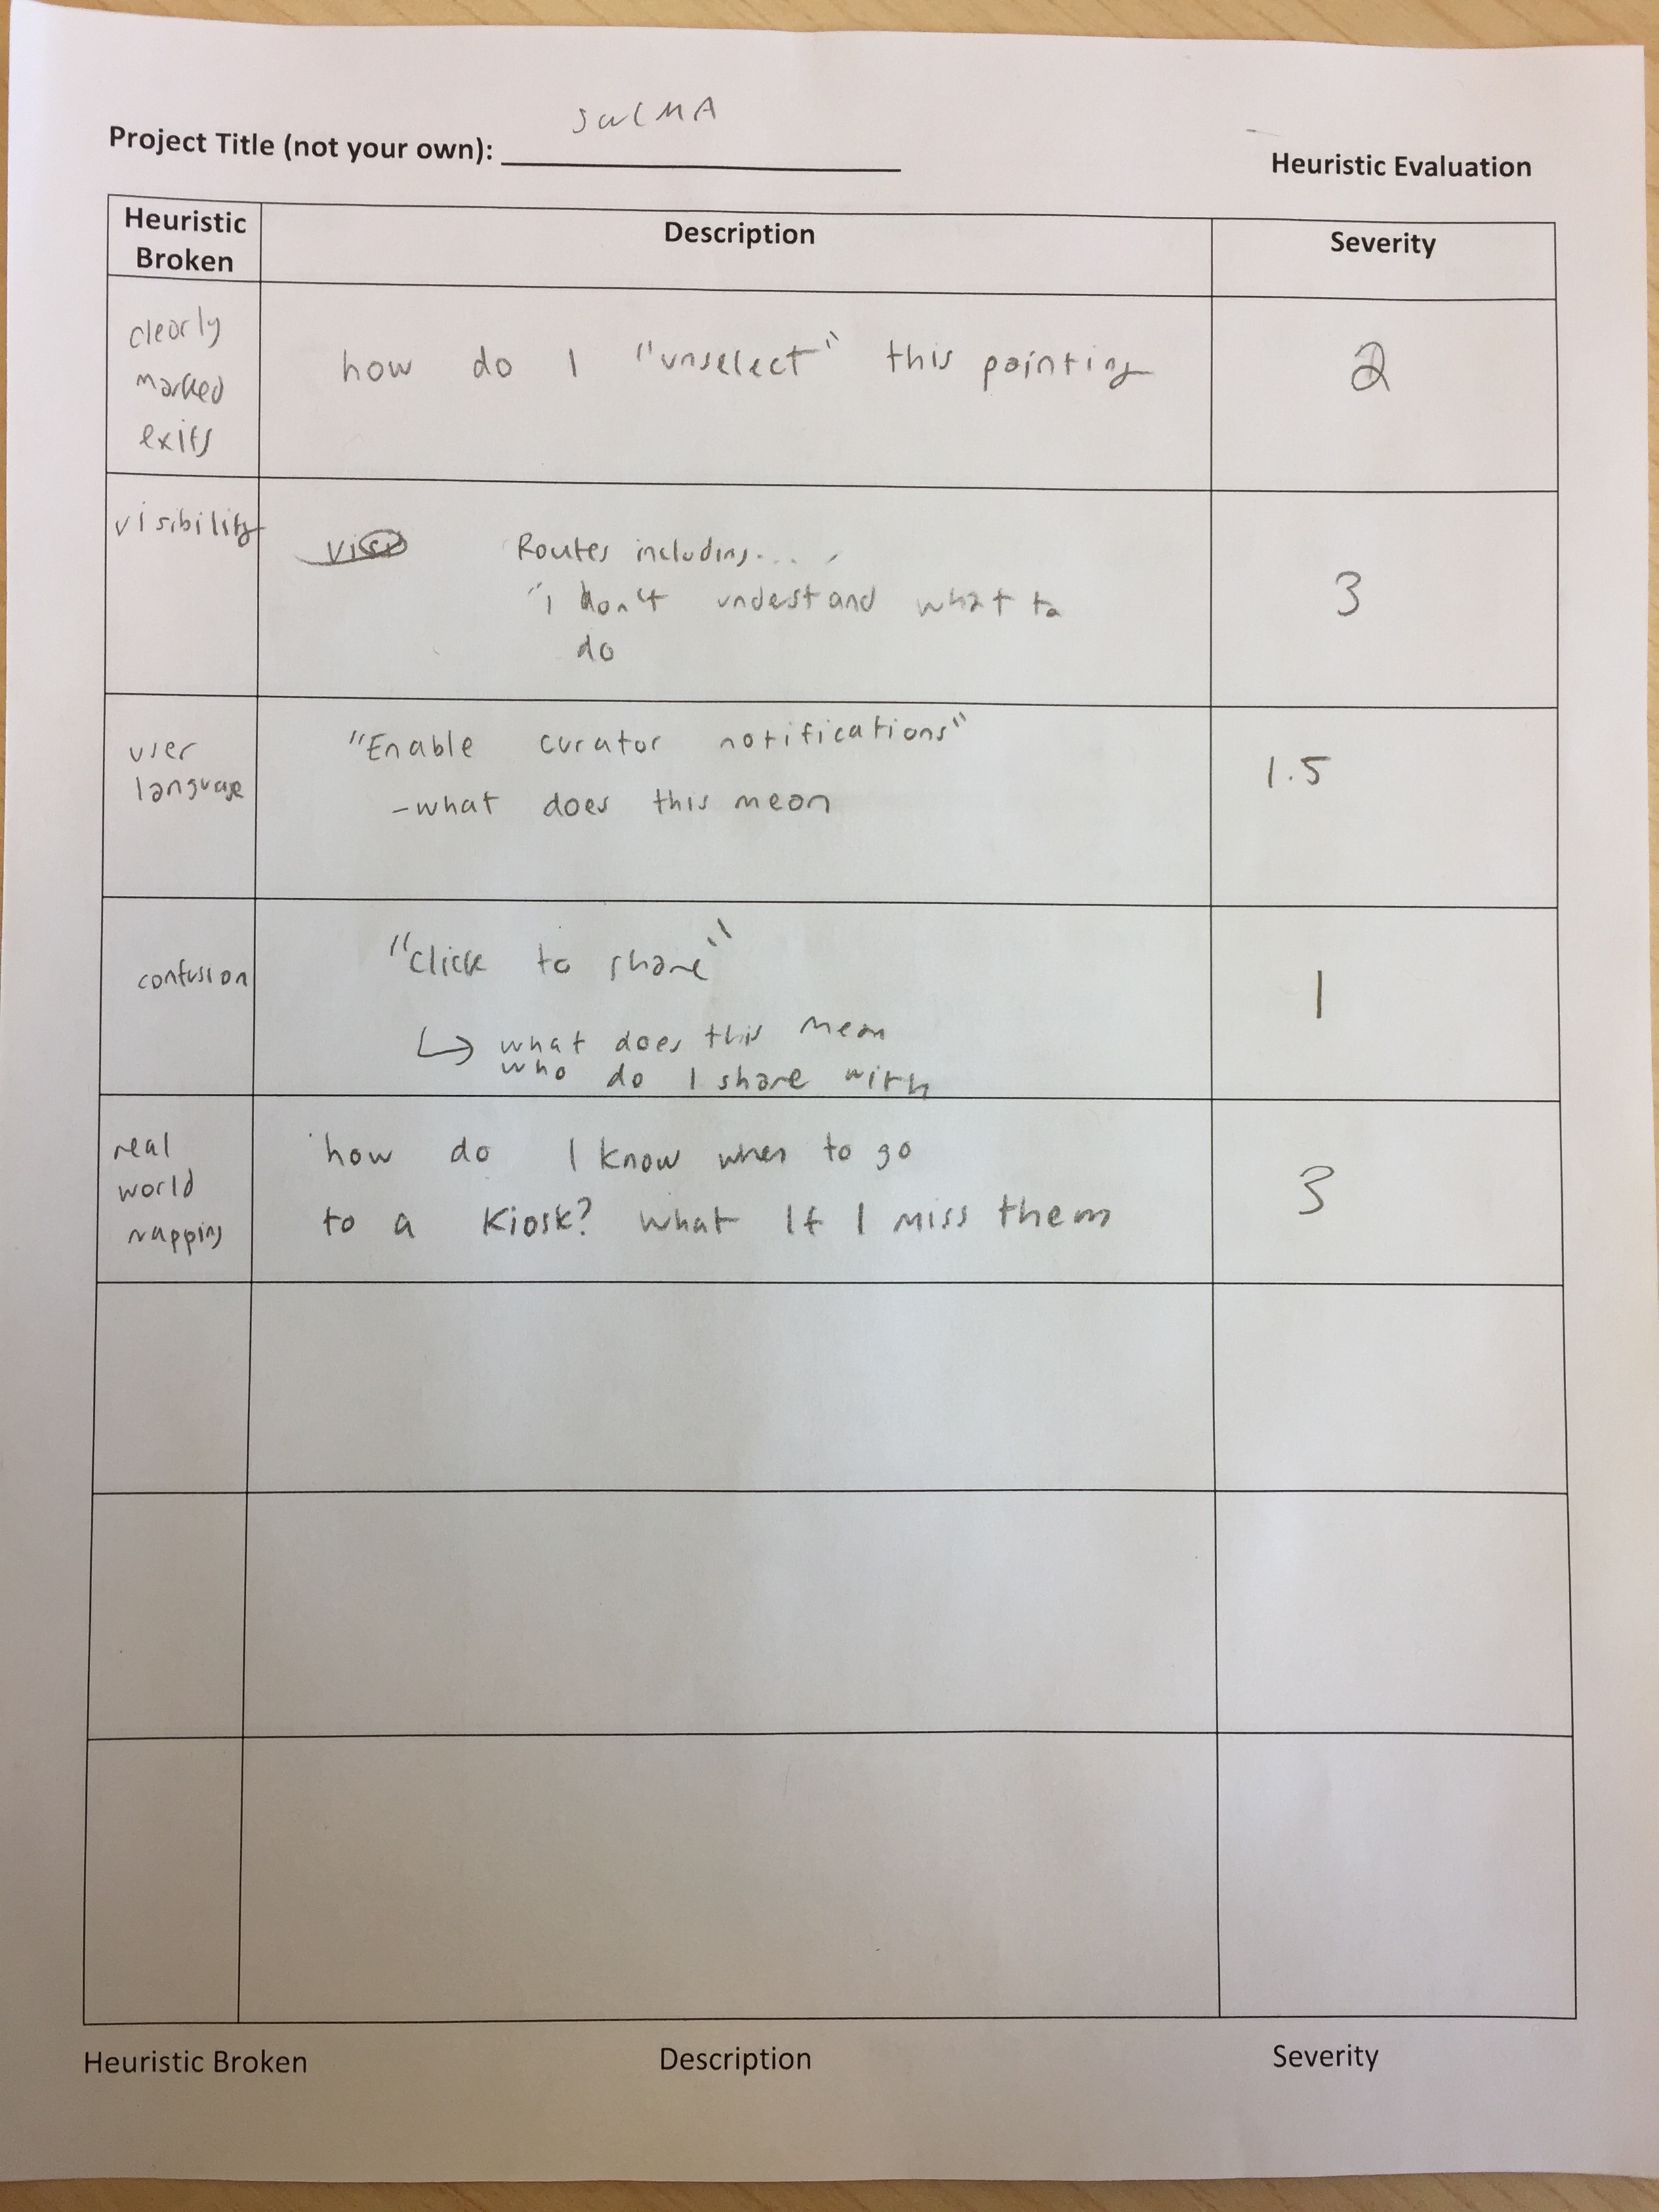 SWCMA
Project Title (not your own):
Heuristic Evaluation
Heuristic Broken
Description
Severity
clearly
marked
exits
how do I "unselect" this painting
2
visibility
Routes including...
"I don't undestand what to
do
3
user
language
"Enable curator notifications"
-what does this mean
1.5
confusion
"Click to share"
↳ what does this mean
who do I share with
1
real
world
mapping
how do I know when to go
to a kiosk? what if I miss them
3
Heuristic Broken
Description
Severity